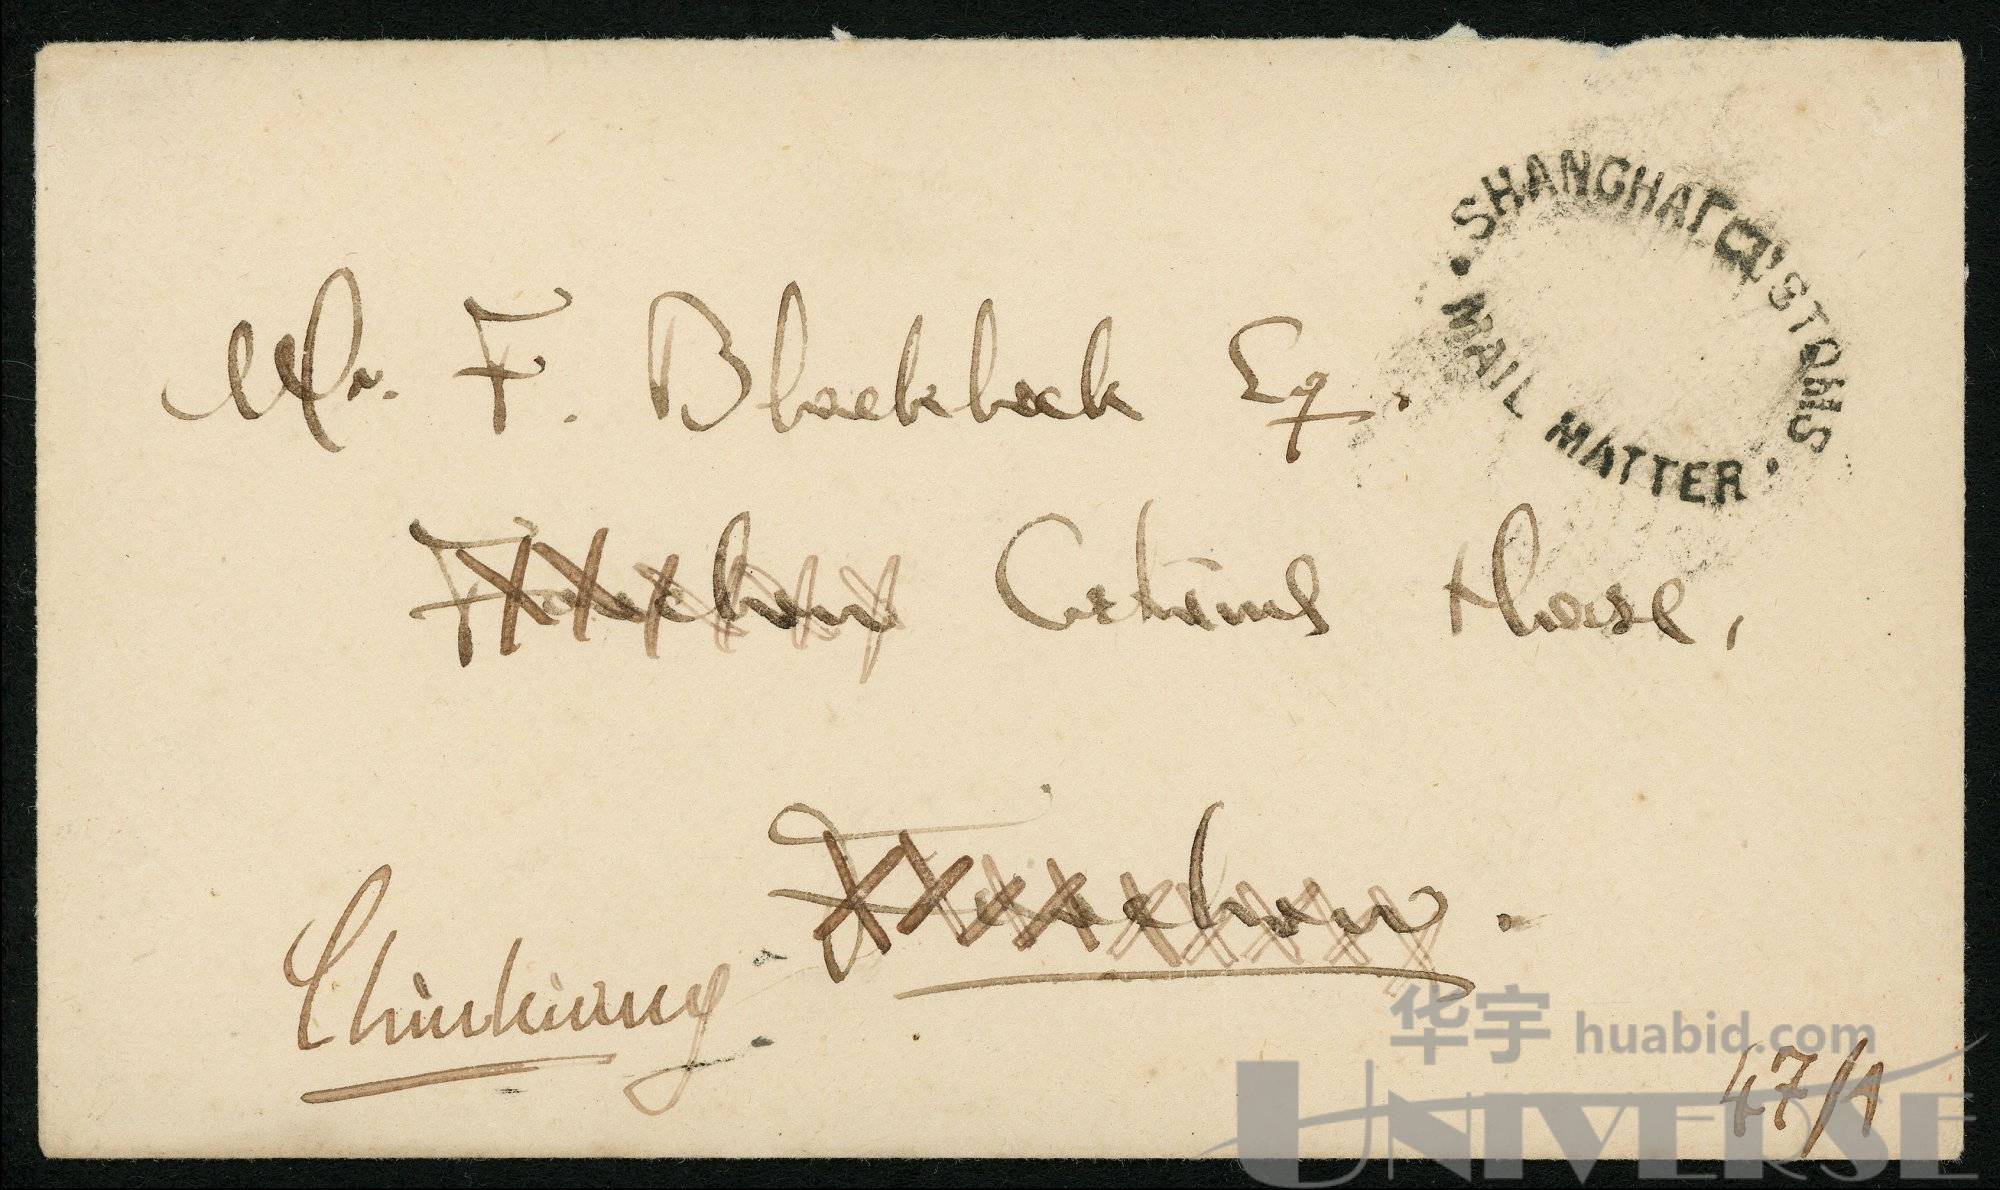 SHANGHAI CUSTOMS
MAIL MATTER
Mr. F. Blacklock Eq.
Foochow Customs House,
Foochow.
Chinkiang
47/1
华宇 huabid.com
UNIVERSE